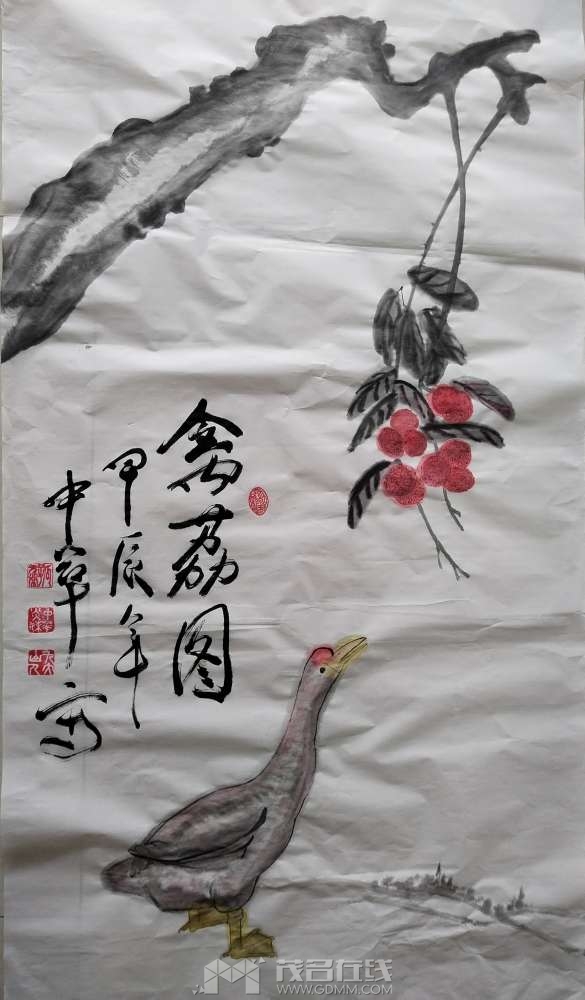 禽荔图
甲辰年
中华写
茂名在线
WWW.GDMM.COM